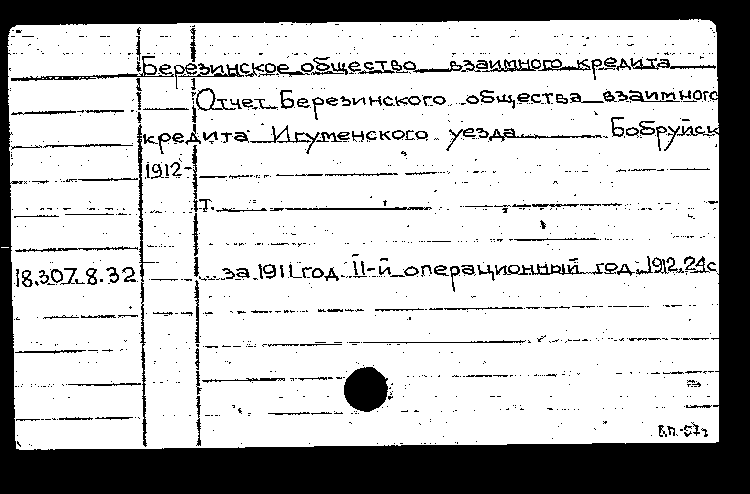 Березинское общество взаимного кредита
Отчет Березинского общества взаимного
кредита Игуменского уезда Бобруйск
1912-
т.
18.307.8.32 ... за 1911 год II-й операционный год. 1912. 24с
В.П.-57г